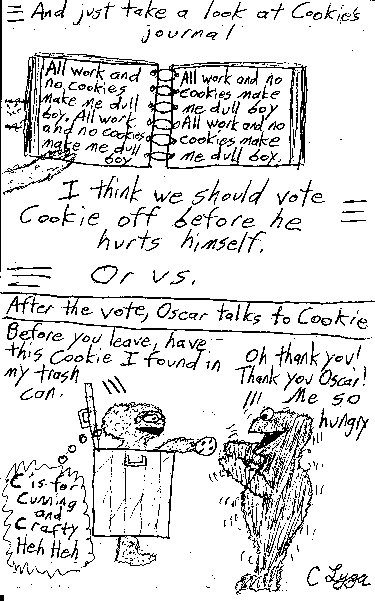 And just take a look at Cookie's
journal
All work and
no cookies
make me dull
boy. All work
and no cookies
make me dull
boy
All work and no
cookies make
me dull boy
All work and no
cookies make
me dull boy.
I think we should vote
Cookie off before he
hurts himself.
Or us.
After the vote, Oscar talks to Cookie
Before you leave, have
this Cookie I found in
my trash
can.
Oh thank you!
Thank you Oscar!
Me so
hungry
C is for
Cunning
and
Crafty
Heh Heh
C Lyga